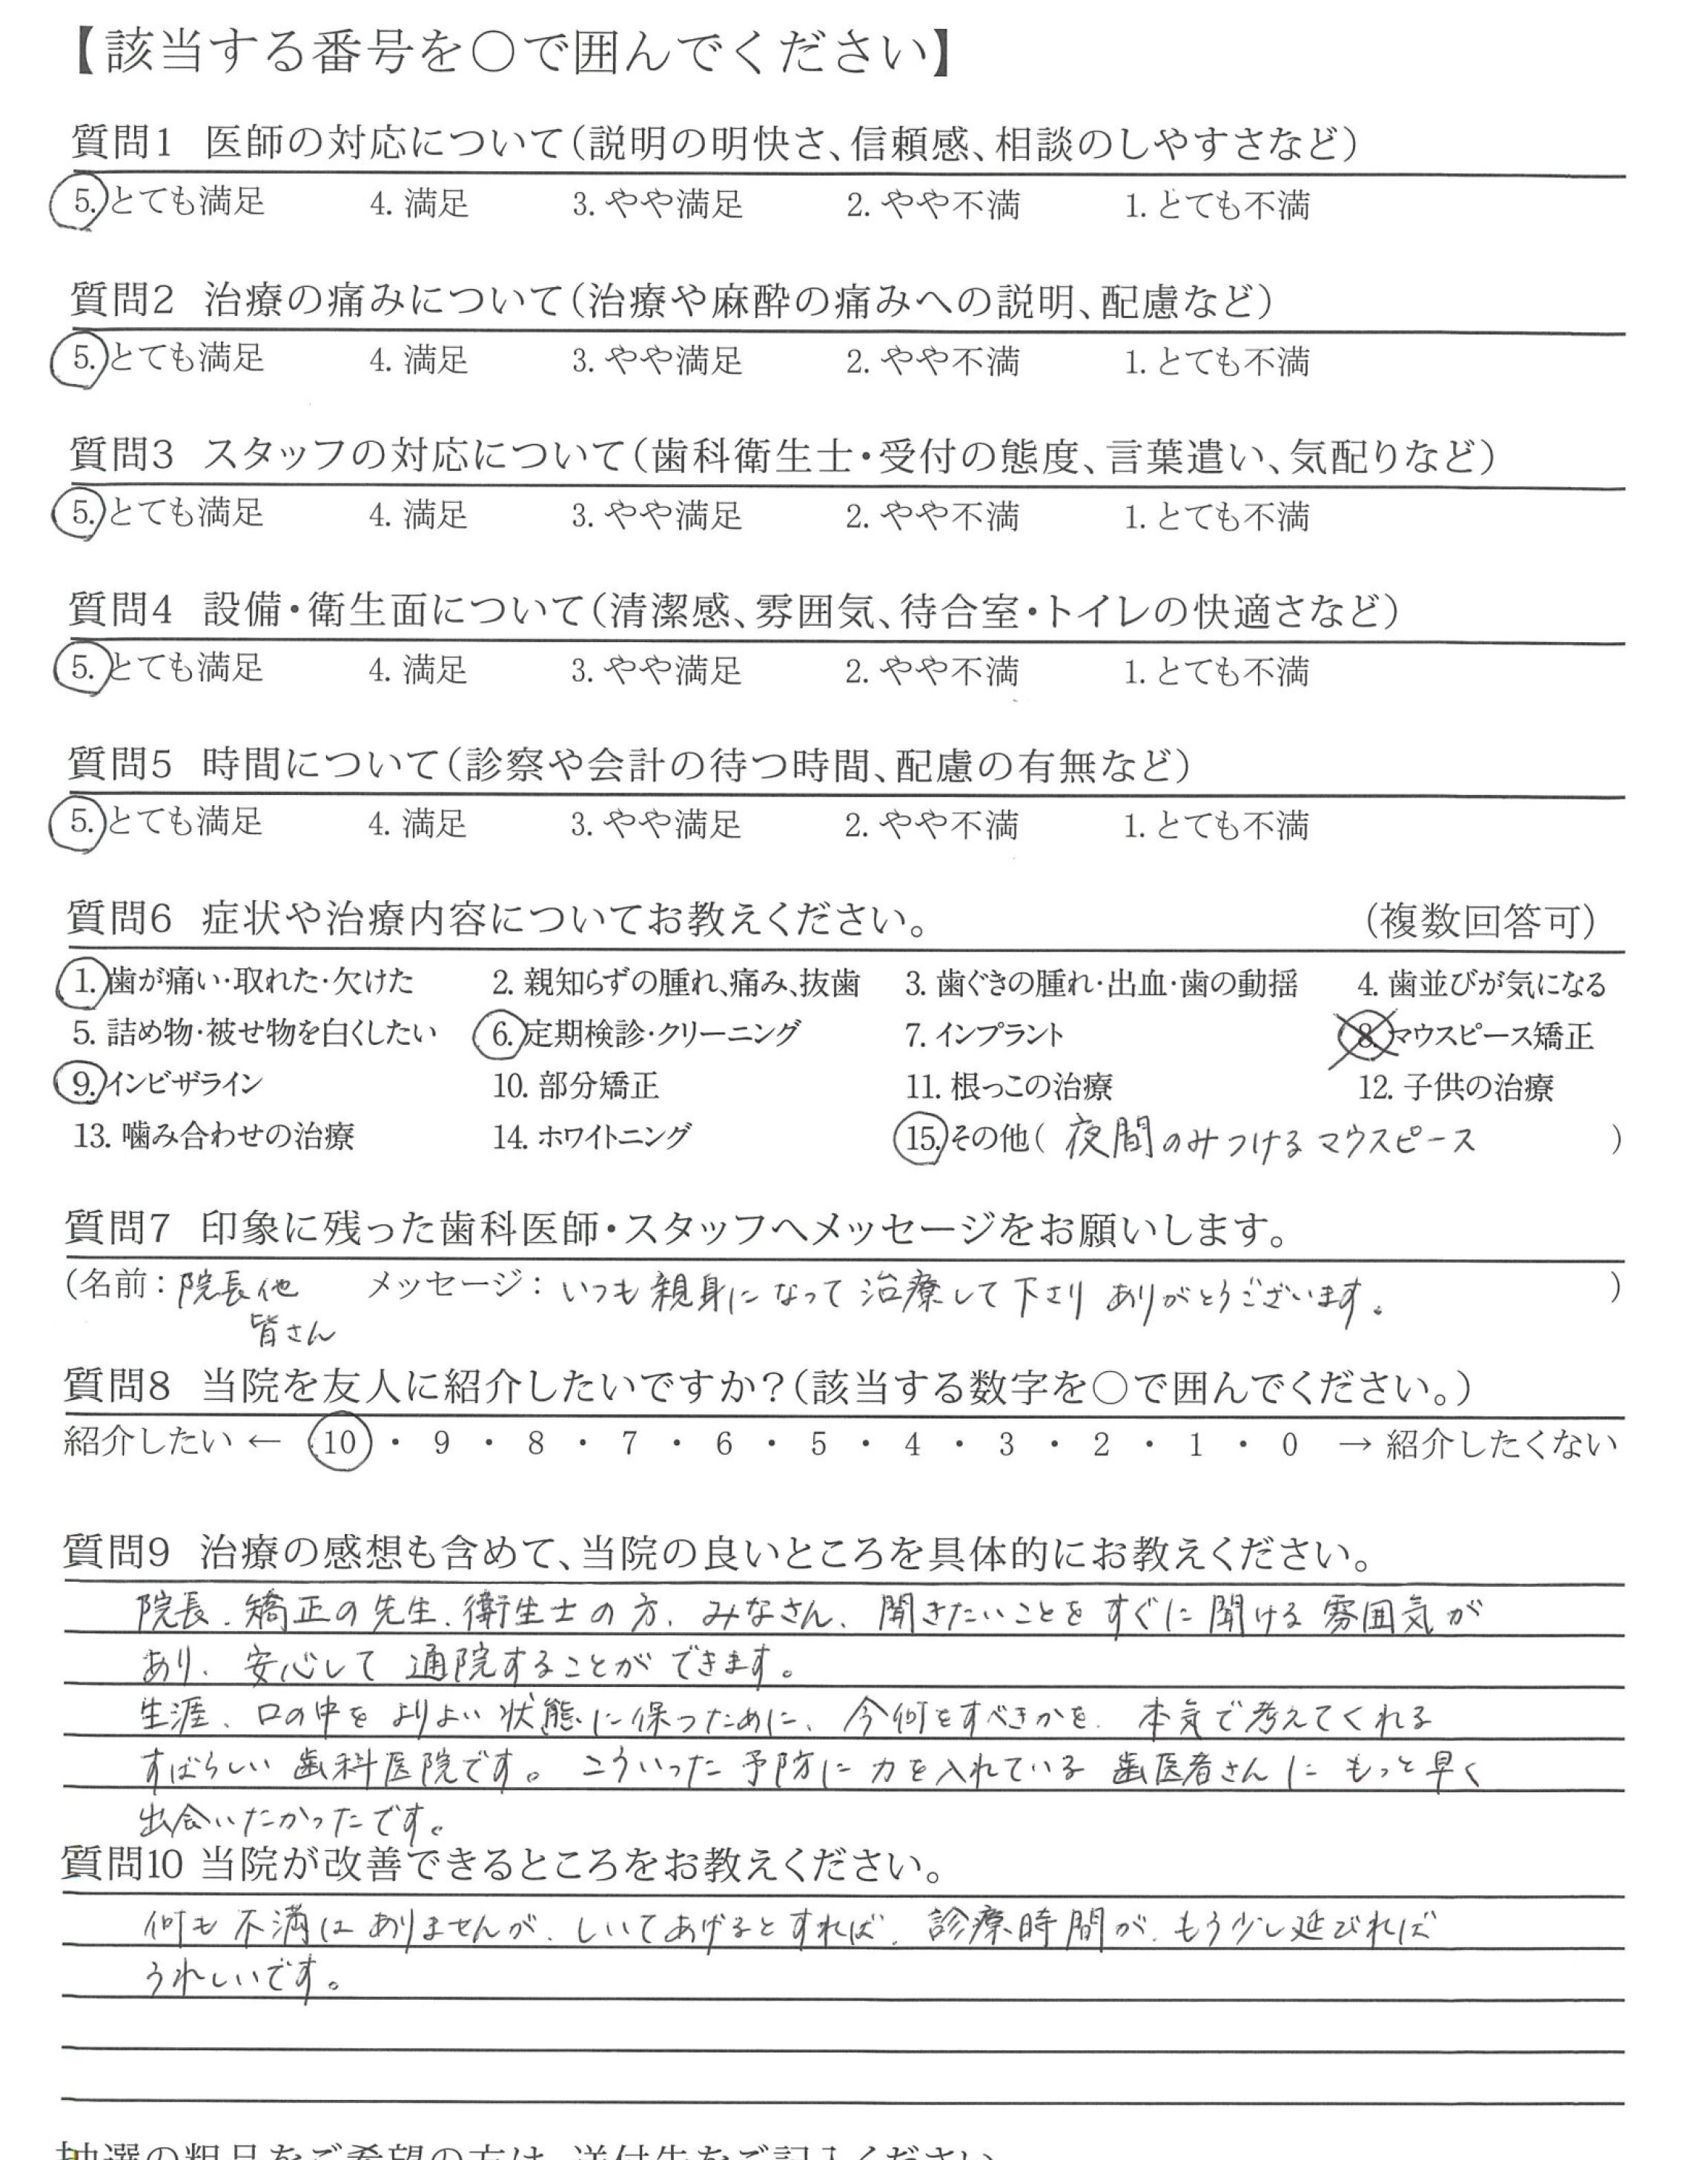 【該当する番号を○で囲んでください】
質問1 医師の対応について(説明の明快さ、信頼感、相談のしやすさなど)
5. とても満足 4. 満足 3. やや満足 2. やや不満 1. とても不満
質問2 治療の痛みについて(治療や麻酔の痛みへの説明、配慮など)
5. とても満足 4. 満足 3. やや満足 2. やや不満 1. とても不満
質問3 スタッフの対応について(歯科衛生士・受付の態度、言葉遣い、気配りなど)
5. とても満足 4. 満足 3. やや満足 2. やや不満 1. とても不満
質問4 設備・衛生面について(清潔感、雰囲気、待合室・トイレの快適さなど)
5. とても満足 4. 満足 3. やや満足 2. やや不満 1. とても不満
質問5 時間について(診察や会計の待つ時間、配慮の有無など)
5. とても満足 4. 満足 3. やや満足 2. やや不満 1. とても不満
質問6 症状や治療内容についてお教えください。 (複数回答可)
1. 歯が痛い・取れた・欠けた 2. 親知らずの腫れ、痛み、抜歯 3. 歯ぐきの腫れ・出血・歯の動揺 4. 歯並びが気になる
5. 詰め物・被せ物を白くしたい 6. 定期検診・クリーニング 7. インプラント 8. マウスピース矯正
9. インビザライン 10. 部分矯正 11. 根っこの治療 12. 子供の治療
13. 噛み合わせの治療 14. ホワイトニング 15. その他( 夜間のみつけるマウスピース )
質問7 印象に残った歯科医師・スタッフへメッセージをお願いします。
(名前: 院長他 メッセージ: いつも親身になって治療して下さりありがとうございます。 )
皆さん
質問8 当院を友人に紹介したいですか?(該当する数字を○で囲んでください。)
紹介したい ← 10 ・ 9 ・ 8 ・ 7 ・ 6 ・ 5 ・ 4 ・ 3 ・ 2 ・ 1 ・ 0 → 紹介したくない
質問9 治療の感想も含めて、当院の良いところを具体的にお教えください。
院長、矯正の先生、衛生士の方、みなさん、聞きたいことをすぐに聞ける雰囲気が
あり、安心して通院することができます。
生涯、口の中をよりよい状態に保つために、今何をすべきかを、本気で考えてくれる
すばらしい歯科医院です。こういった予防に力を入れている歯医者さんにもっと早く
出会いたかったです。
質問10 当院が改善できるところをお教えください。
何も不満はありませんが、しいてあげるとすれば、診療時間が、もう少し延びれば
うれしいです。
抽選の粗品をご希望の方は、送付先をご記入ください